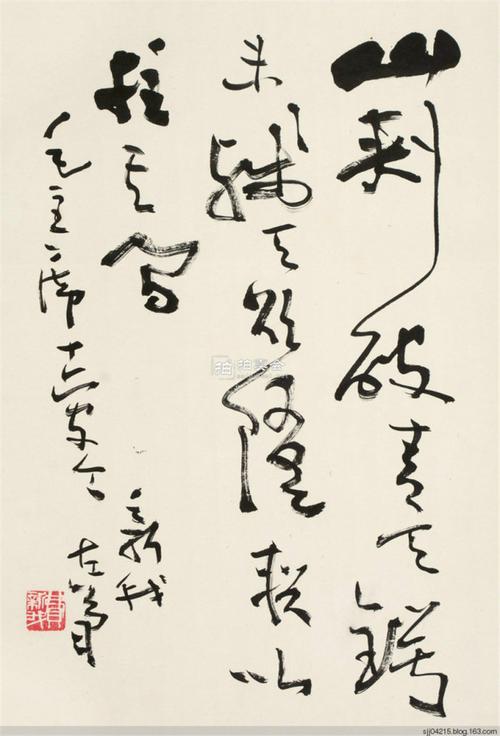 山刺破青天鍔
未殘天欲墮賴以
拄其間
毛主席十六字令
新我
左筆
sjj04215.blog.163.com